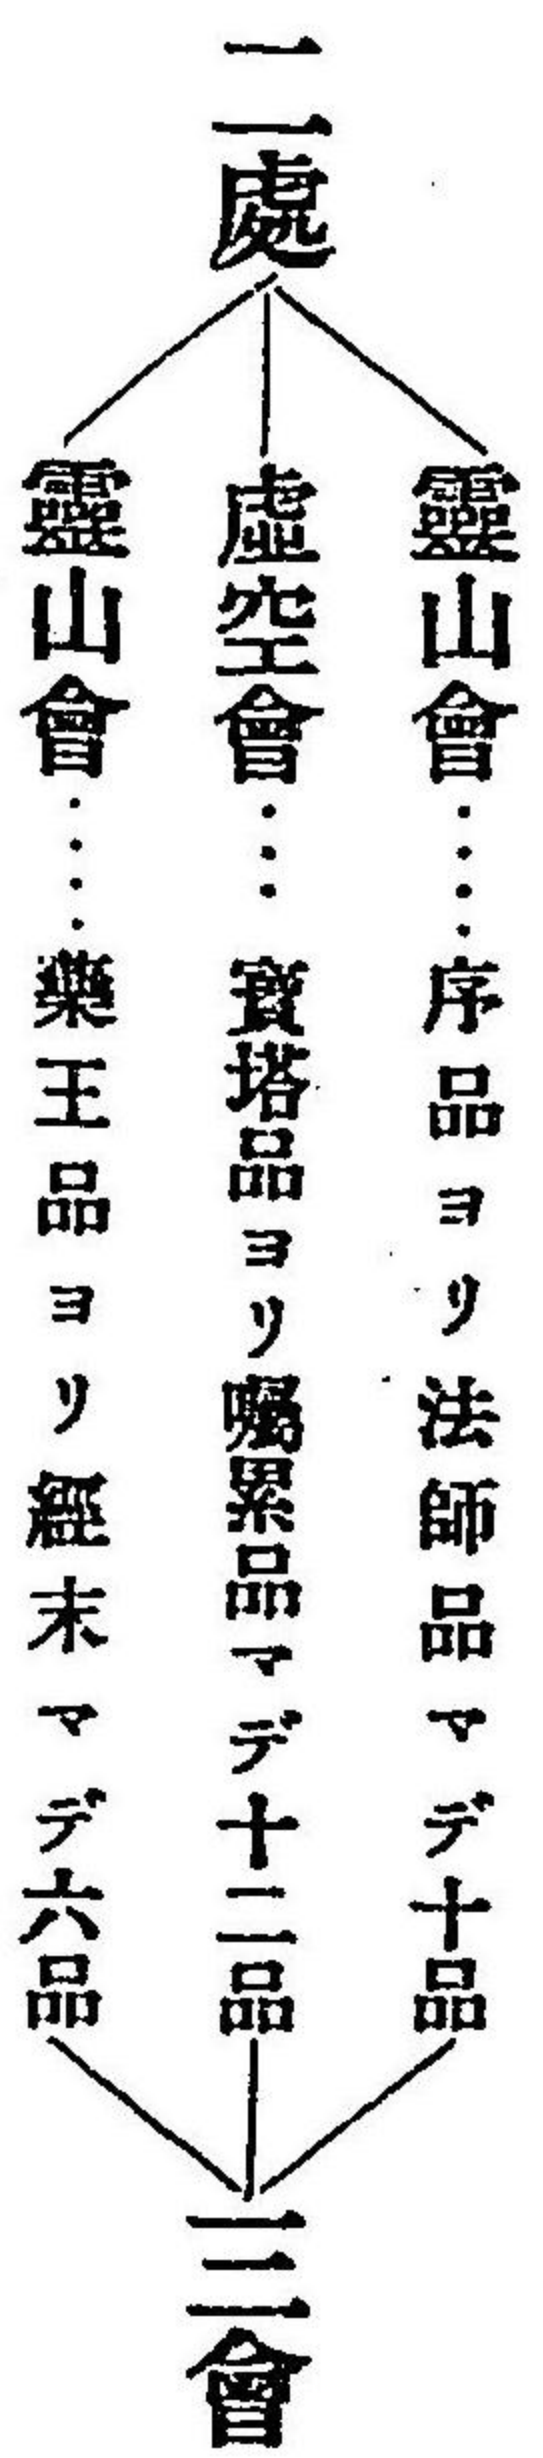 二處
靈山會‥‥序品ヨリ法師品マデ十品
虛空會…寶塔品ヨリ囑累品マデ十二品
靈山會‥‥藥王品ヨリ經末マデ六品
三會